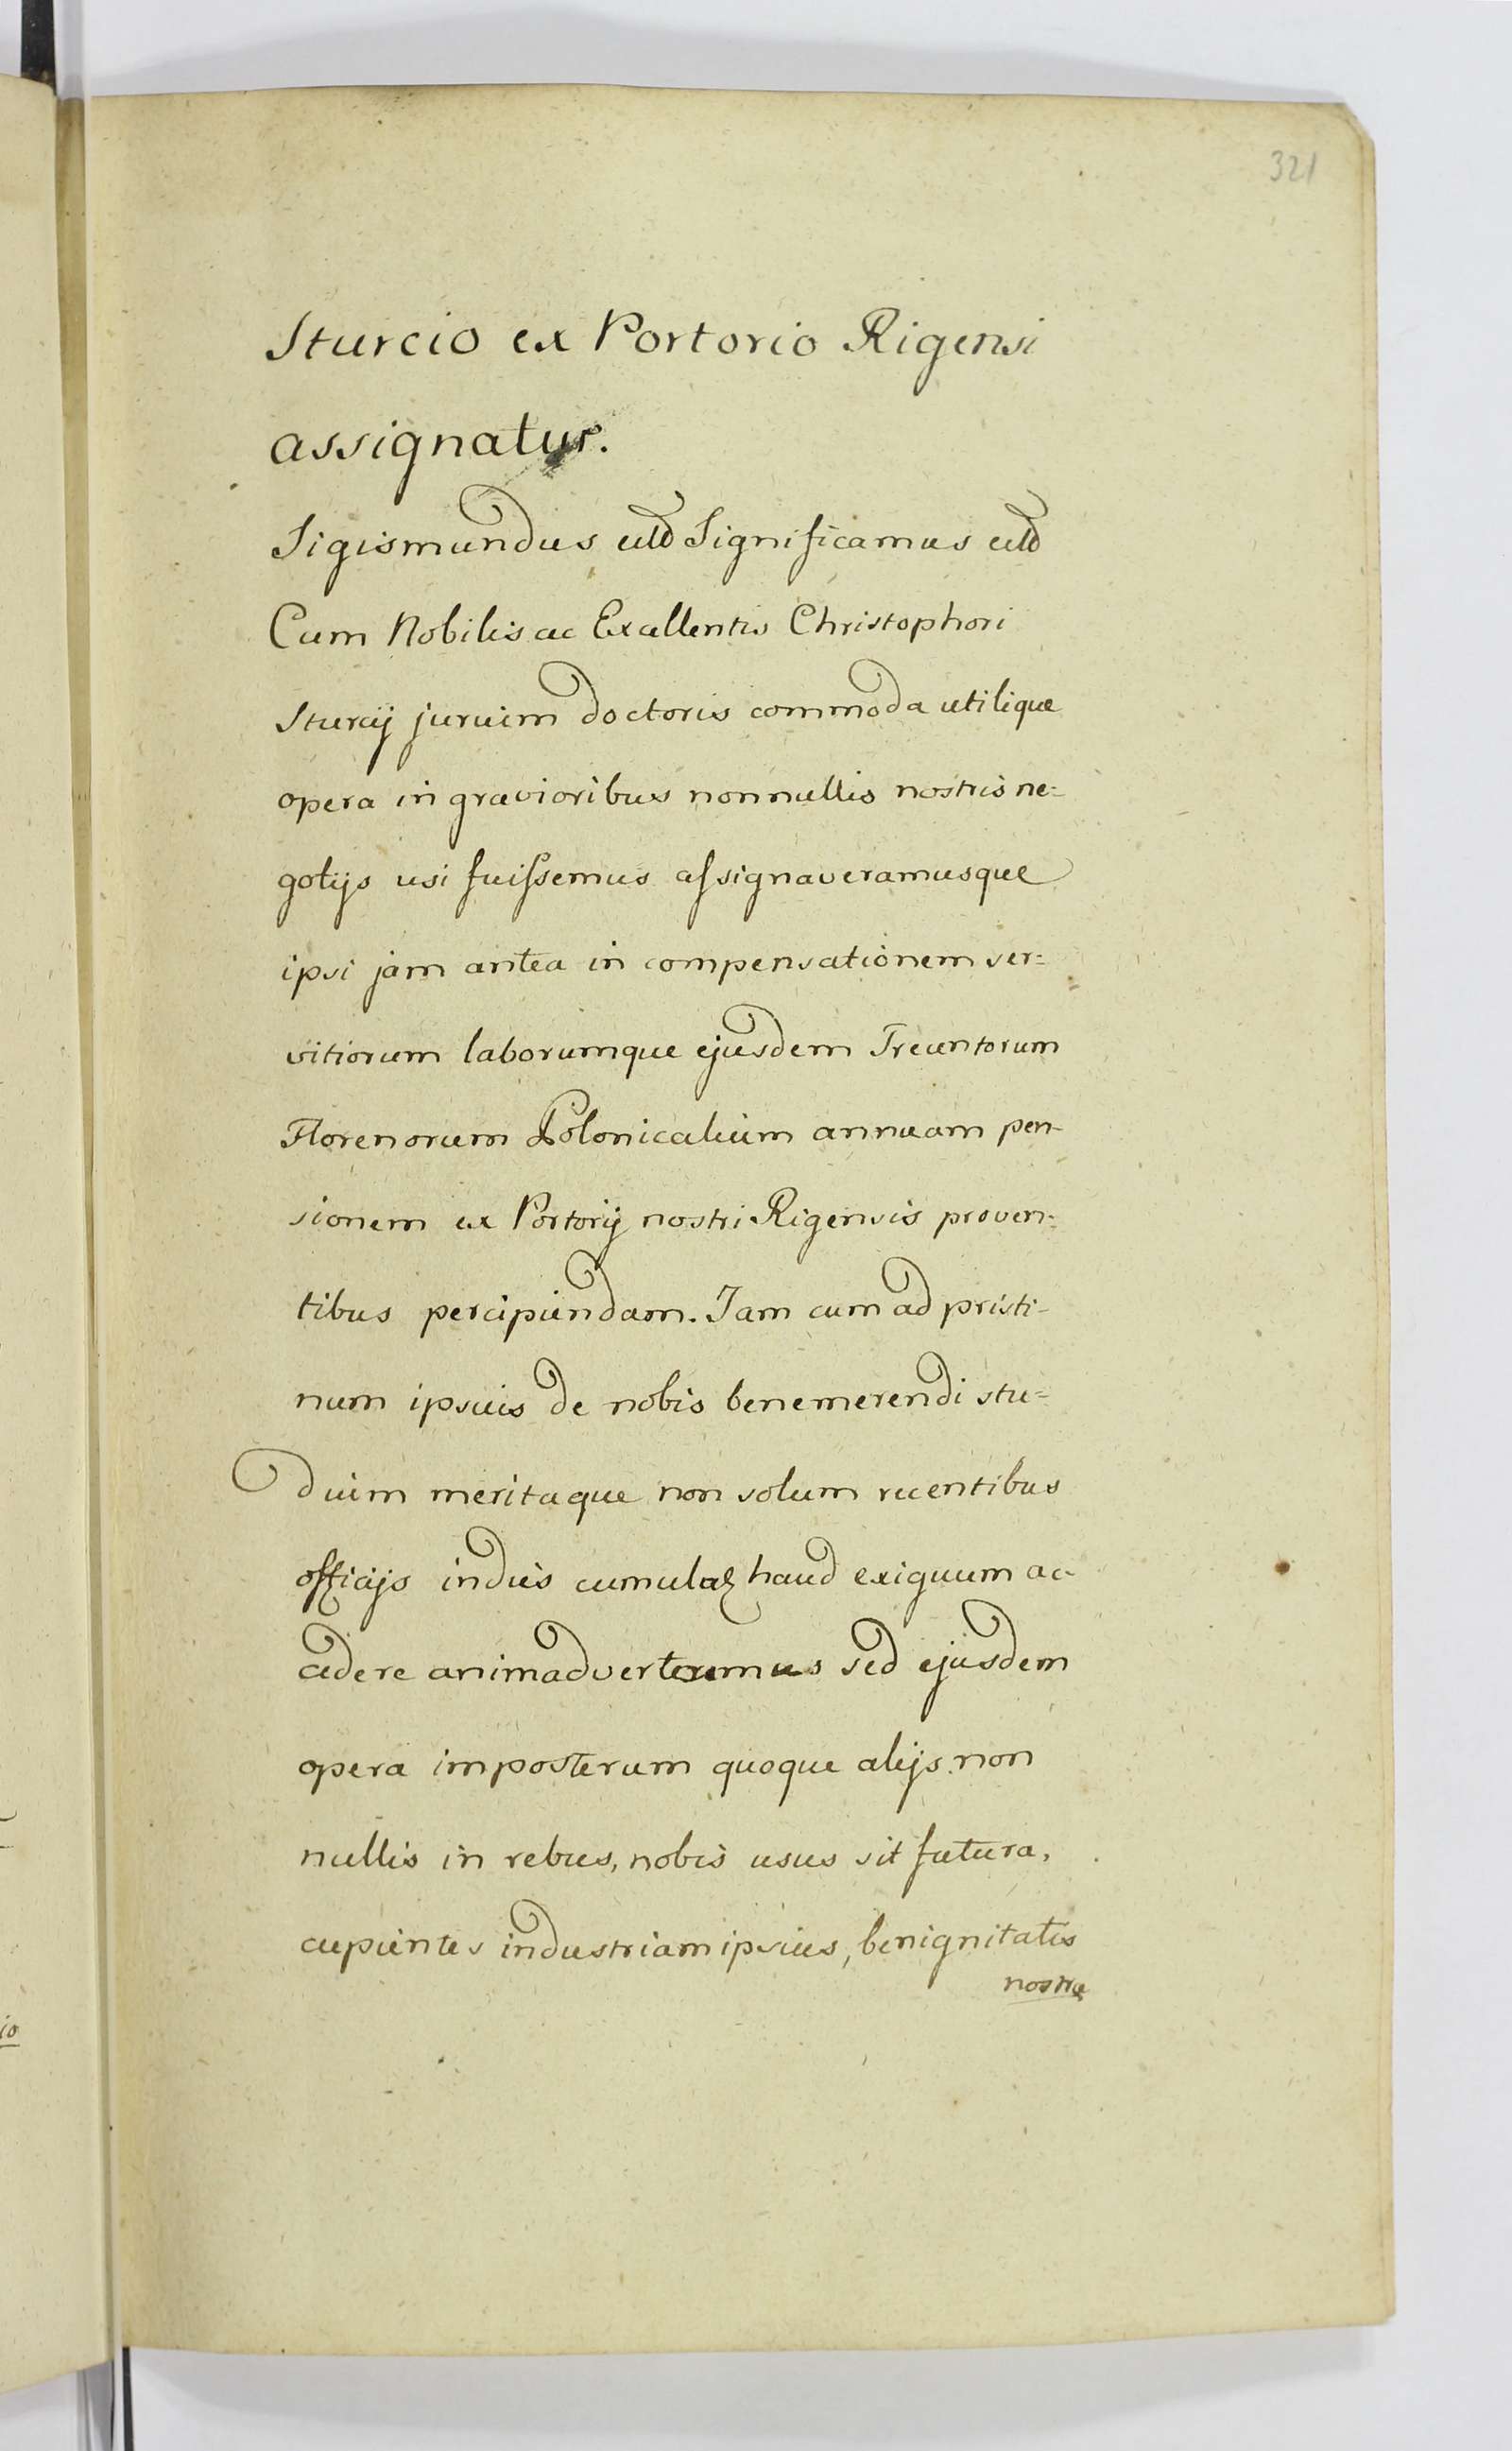 321
Sturcio ex Portorio Rigensi
assignatur.
Sigismundus etc Significamus etc
Cum Nobilis ac Excellentis Christophori
Sturcij jurium doctoris commoda utilique
opera in gravioribus nonnullis nostris ne=
gotijs usi fuissemus assignaveramusque
ipsi jam antea in compensationem ser=
vitiorum laborumque ejusdem Trecentorum
Florenorum Polonicalium annuam pen-
sionem ex Portorij nostri Rigensis proven=
tibus percipiendam. Jam cum ad pristi-
num ipsius de nobis benemerendi stu=
dium meritaque non solum recentibus
officijs indies cumulatę haud exiguum ac-
cedere animadverteremus sed ejusdem
opera imposterum quoque alijs non
nullis in rebus, nobis usus sit futura,
cupientes industriam ipsius, benignitatis
nostrę
io